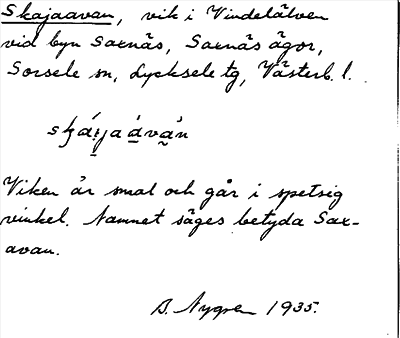 Skajaavan, vik i Vindelälven
vid byn Saxnäs, Saxnäs ägor,
Sorsele sn, Lycksele tg, Västerb. l.
Viken är smal och går i spetsig
vinkel. Namnet säges betyda Sax-
avan.
B. Nygren 1935.